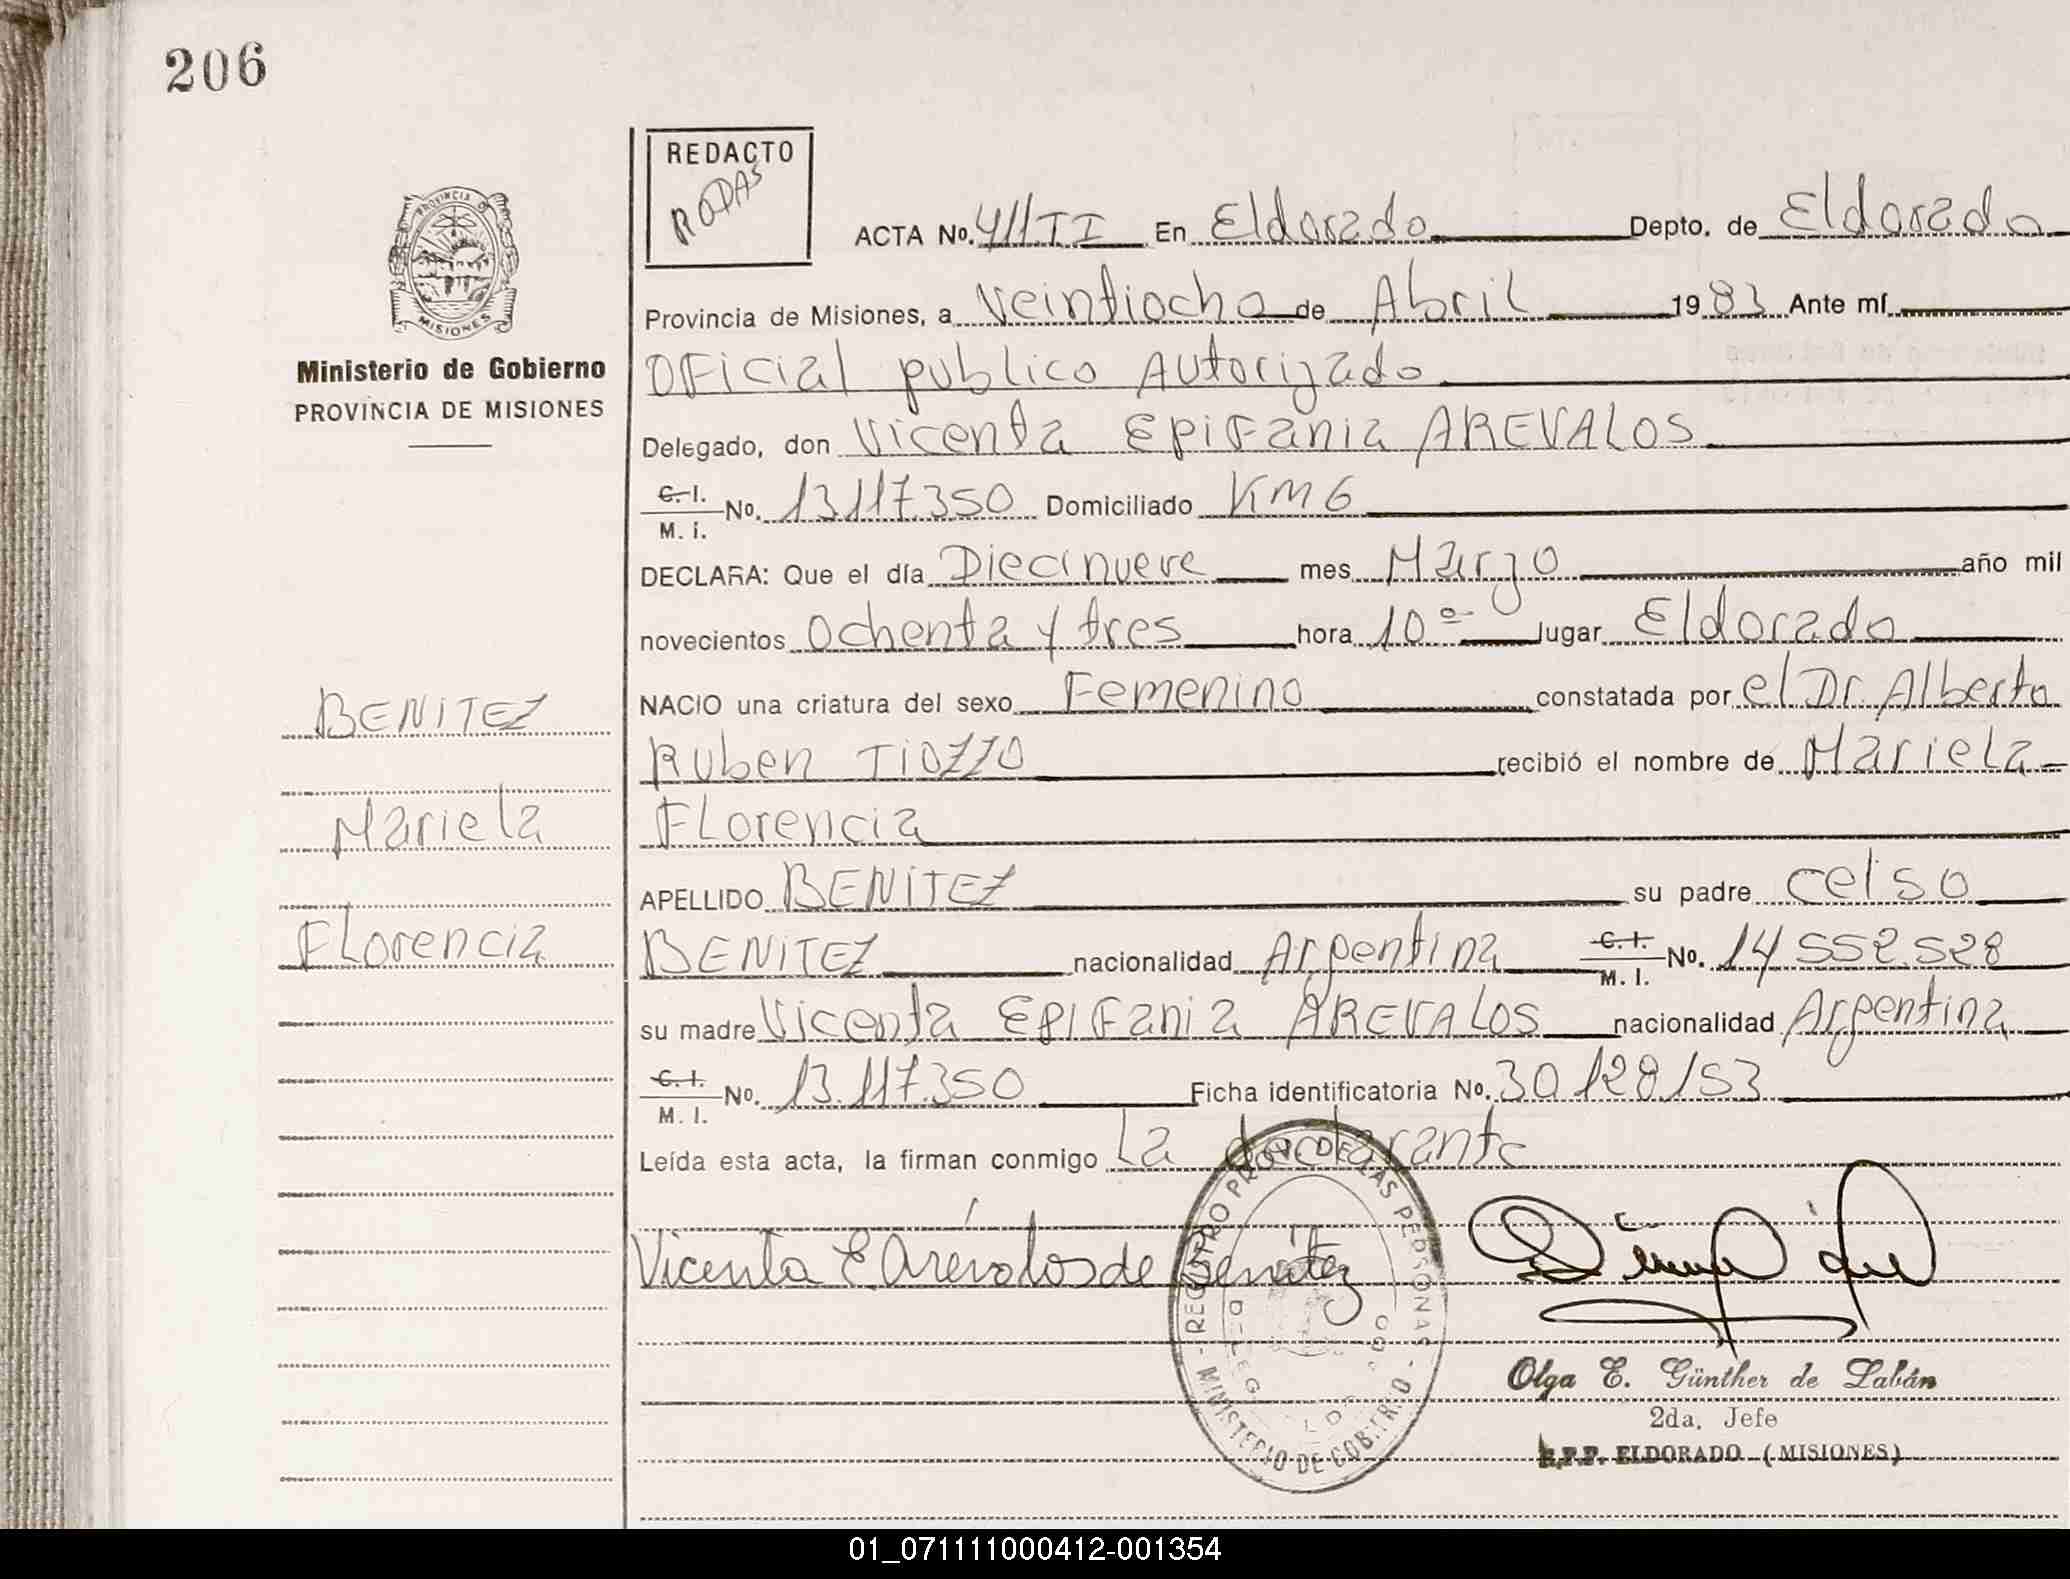 206
REDACTO
RODAS
PROVINCIA D
MISIONES
Ministerio de Gobierno
PROVINCIA DE MISIONES
ACTA No. 411 TI En Eldorado Depto. de Eldorado
Provincia de Misiones, a Veintiocho de Abril 1983 Ante mí
OFicial publico Autorizado
Delegado, don Vicenta EpiFania AREVALOS
C. I.
M. i. No. 13.117.350 Domiciliado KM 6
DECLARA: Que el día Diecinueve mes Marzo año mil
novecientos Ochenta y tres hora 10ª lugar Eldorado
NACIO una criatura del sexo Femenino constatada por el Dr. Alberto
Ruben TIOZZO recibió el nombre de Mariela
FLorencia
APELLIDO BENITEZ su padre celso
BENITEZ nacionalidad Argentina C. I. M. I. No. 14.552.528
su madre Vicenta EpiFania AREVALOS nacionalidad Argentina
C. I.
M. I. No. 13.117.350 Ficha identificatoria No. 30.128.153
Leída esta acta, la firman conmigo La declarante
BENITEZ
Mariela
FLorencia
Vicenta E Arévalos de Benítez
REGISTRO PROV. DE LAS PERSONAS
MINISTERIO DE GOBIERNO
Olga E. Günther de Labán
2da. Jefe
R.P.P. ELDORADO (MISIONES)
01_071111000412-001354